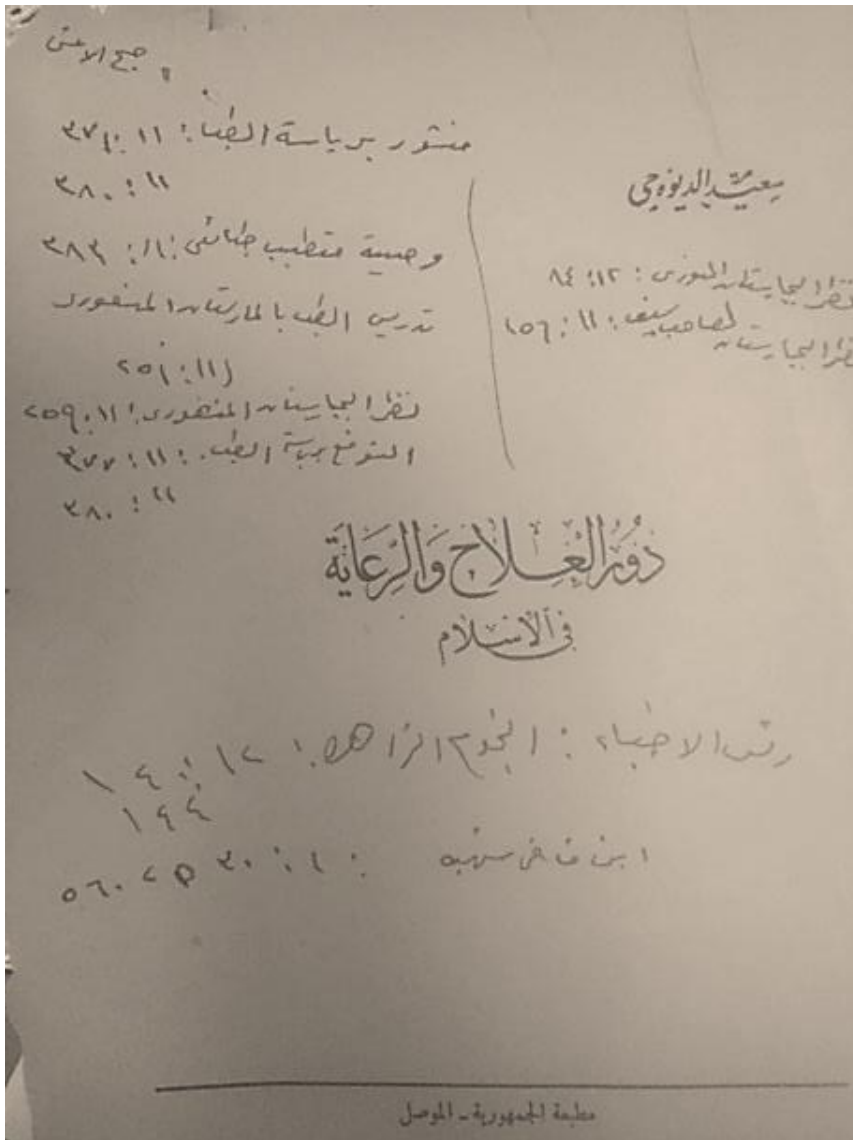 صبح الاعشى
منشور برياسة الطب : ١١ : ٣٧٤
١١ : ٣٨٠
وصية متطبب طبائعي : ١١ : ٣٨٣
تدريس الطب بالمارستان المنصوري
(١١ : ٢٥١
نظر البيمارستان المنصوري : ١١ : ٢٥٩
التوقيع برياسة الطب : ١١ : ٣٧٧
١١ : ٣٨٠
سعيد الديوه جي
نظر البيمارستان النوري : ١٢ : ٨٤
نظر البيمارستان لصاحب سيف : ١١ : ١٥٦
دُورُ العِلاج وَالرِّعَايَة
في الاسلام
رئيس الاطباء : النجوم الزاهرة : ١٢ : ١٤
١٤٤
ابن قاضي شهبه : ١ : ٣٠ ٥٦٠
مطبعة الجمهورية ـ الموصل